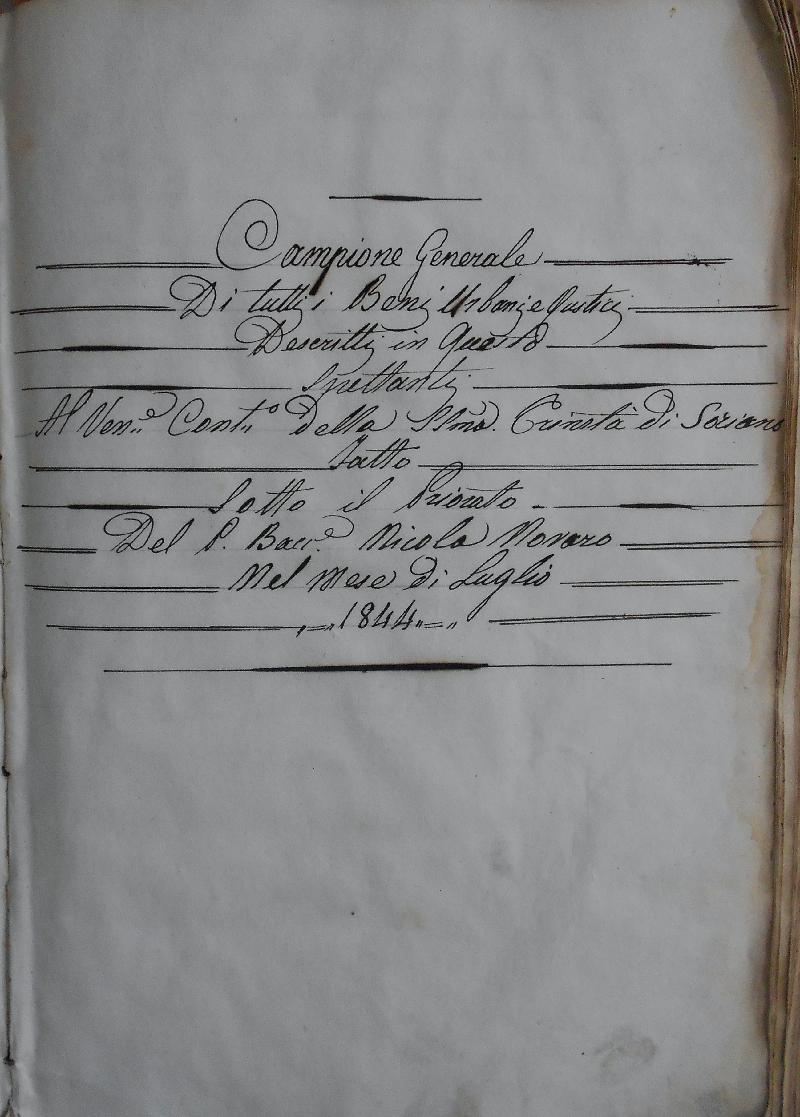 Campione Generale
Di tutti i Beni Urbani e Rustici
Descritti in Questo
Spettanti
Al Ven.e Conv.o della SSma. Trinità di Soriano
Fatto
Sotto il Priorato
Del P. Bacc.e Nicola Novaro
Nel Mese di Luglio
1844